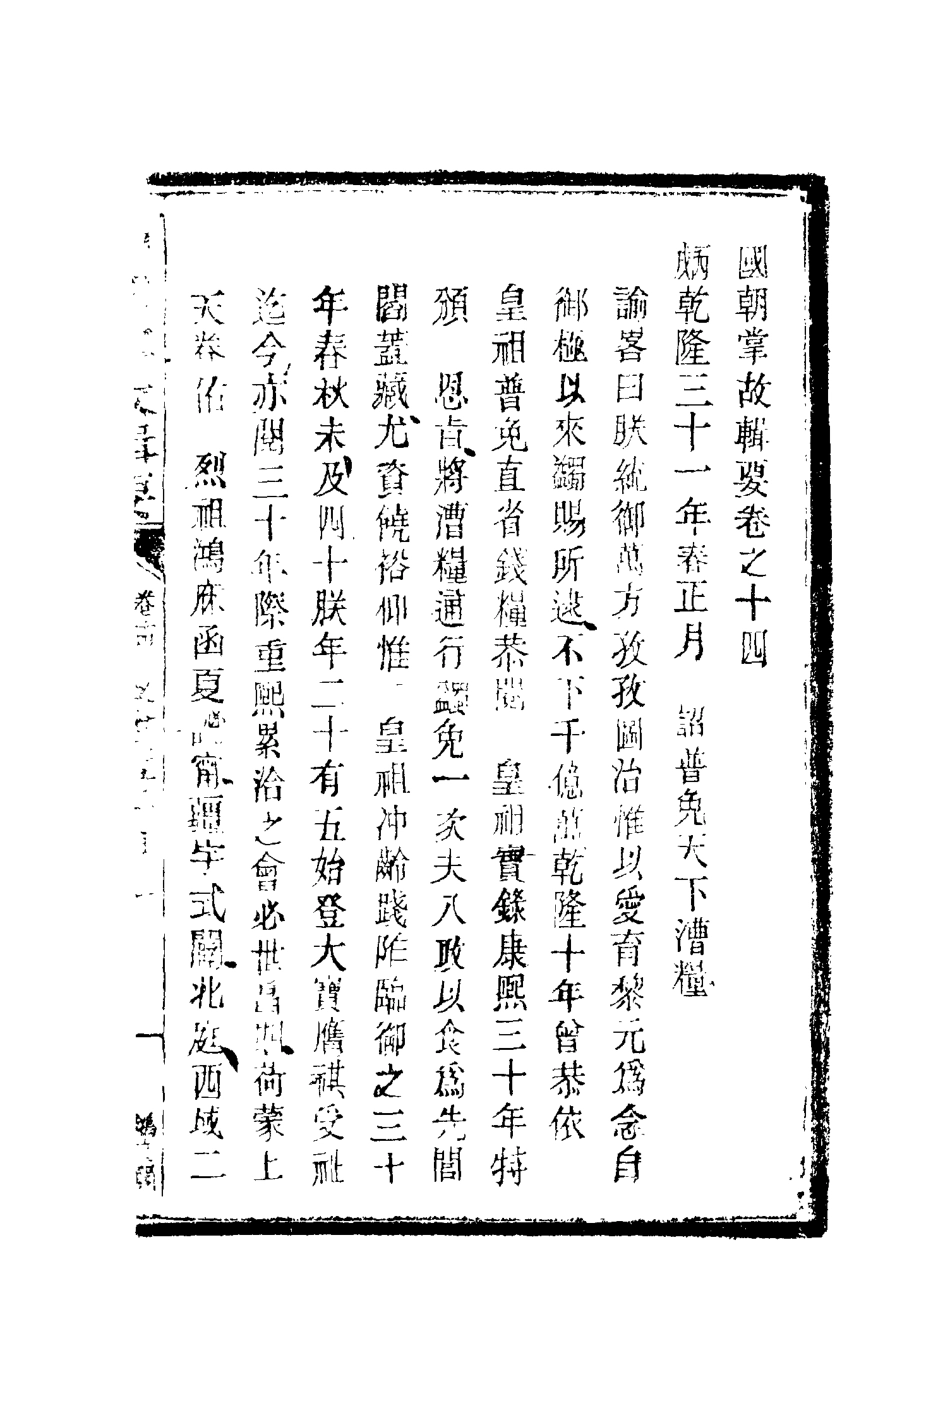 國朝掌故輯要卷之十四
丙戌乾隆三十一年春正月　詔普免天下漕糧
諭畧曰朕統御萬方孜孜圖治惟以愛育黎元爲念自
御極以來蠲賜所逮不下千億萬乾隆十年曾恭依
皇祖普免直省錢糧恭閱　皇祖實錄康熙三十年特
頒　恩旨將漕糧通行蠲免一次夫八政以食爲先閭
閻蓋藏尤資饒裕仰惟　皇祖冲齡踐阼臨御之三十
年春秋未及四十朕年二十有五始登大寶膺祺受祉
迄今亦閱三十年際重熙累洽之會必世昌期荷蒙上
天眷佑　烈祖鴻庥函夏謐甯疆宇式闢北庭西域二